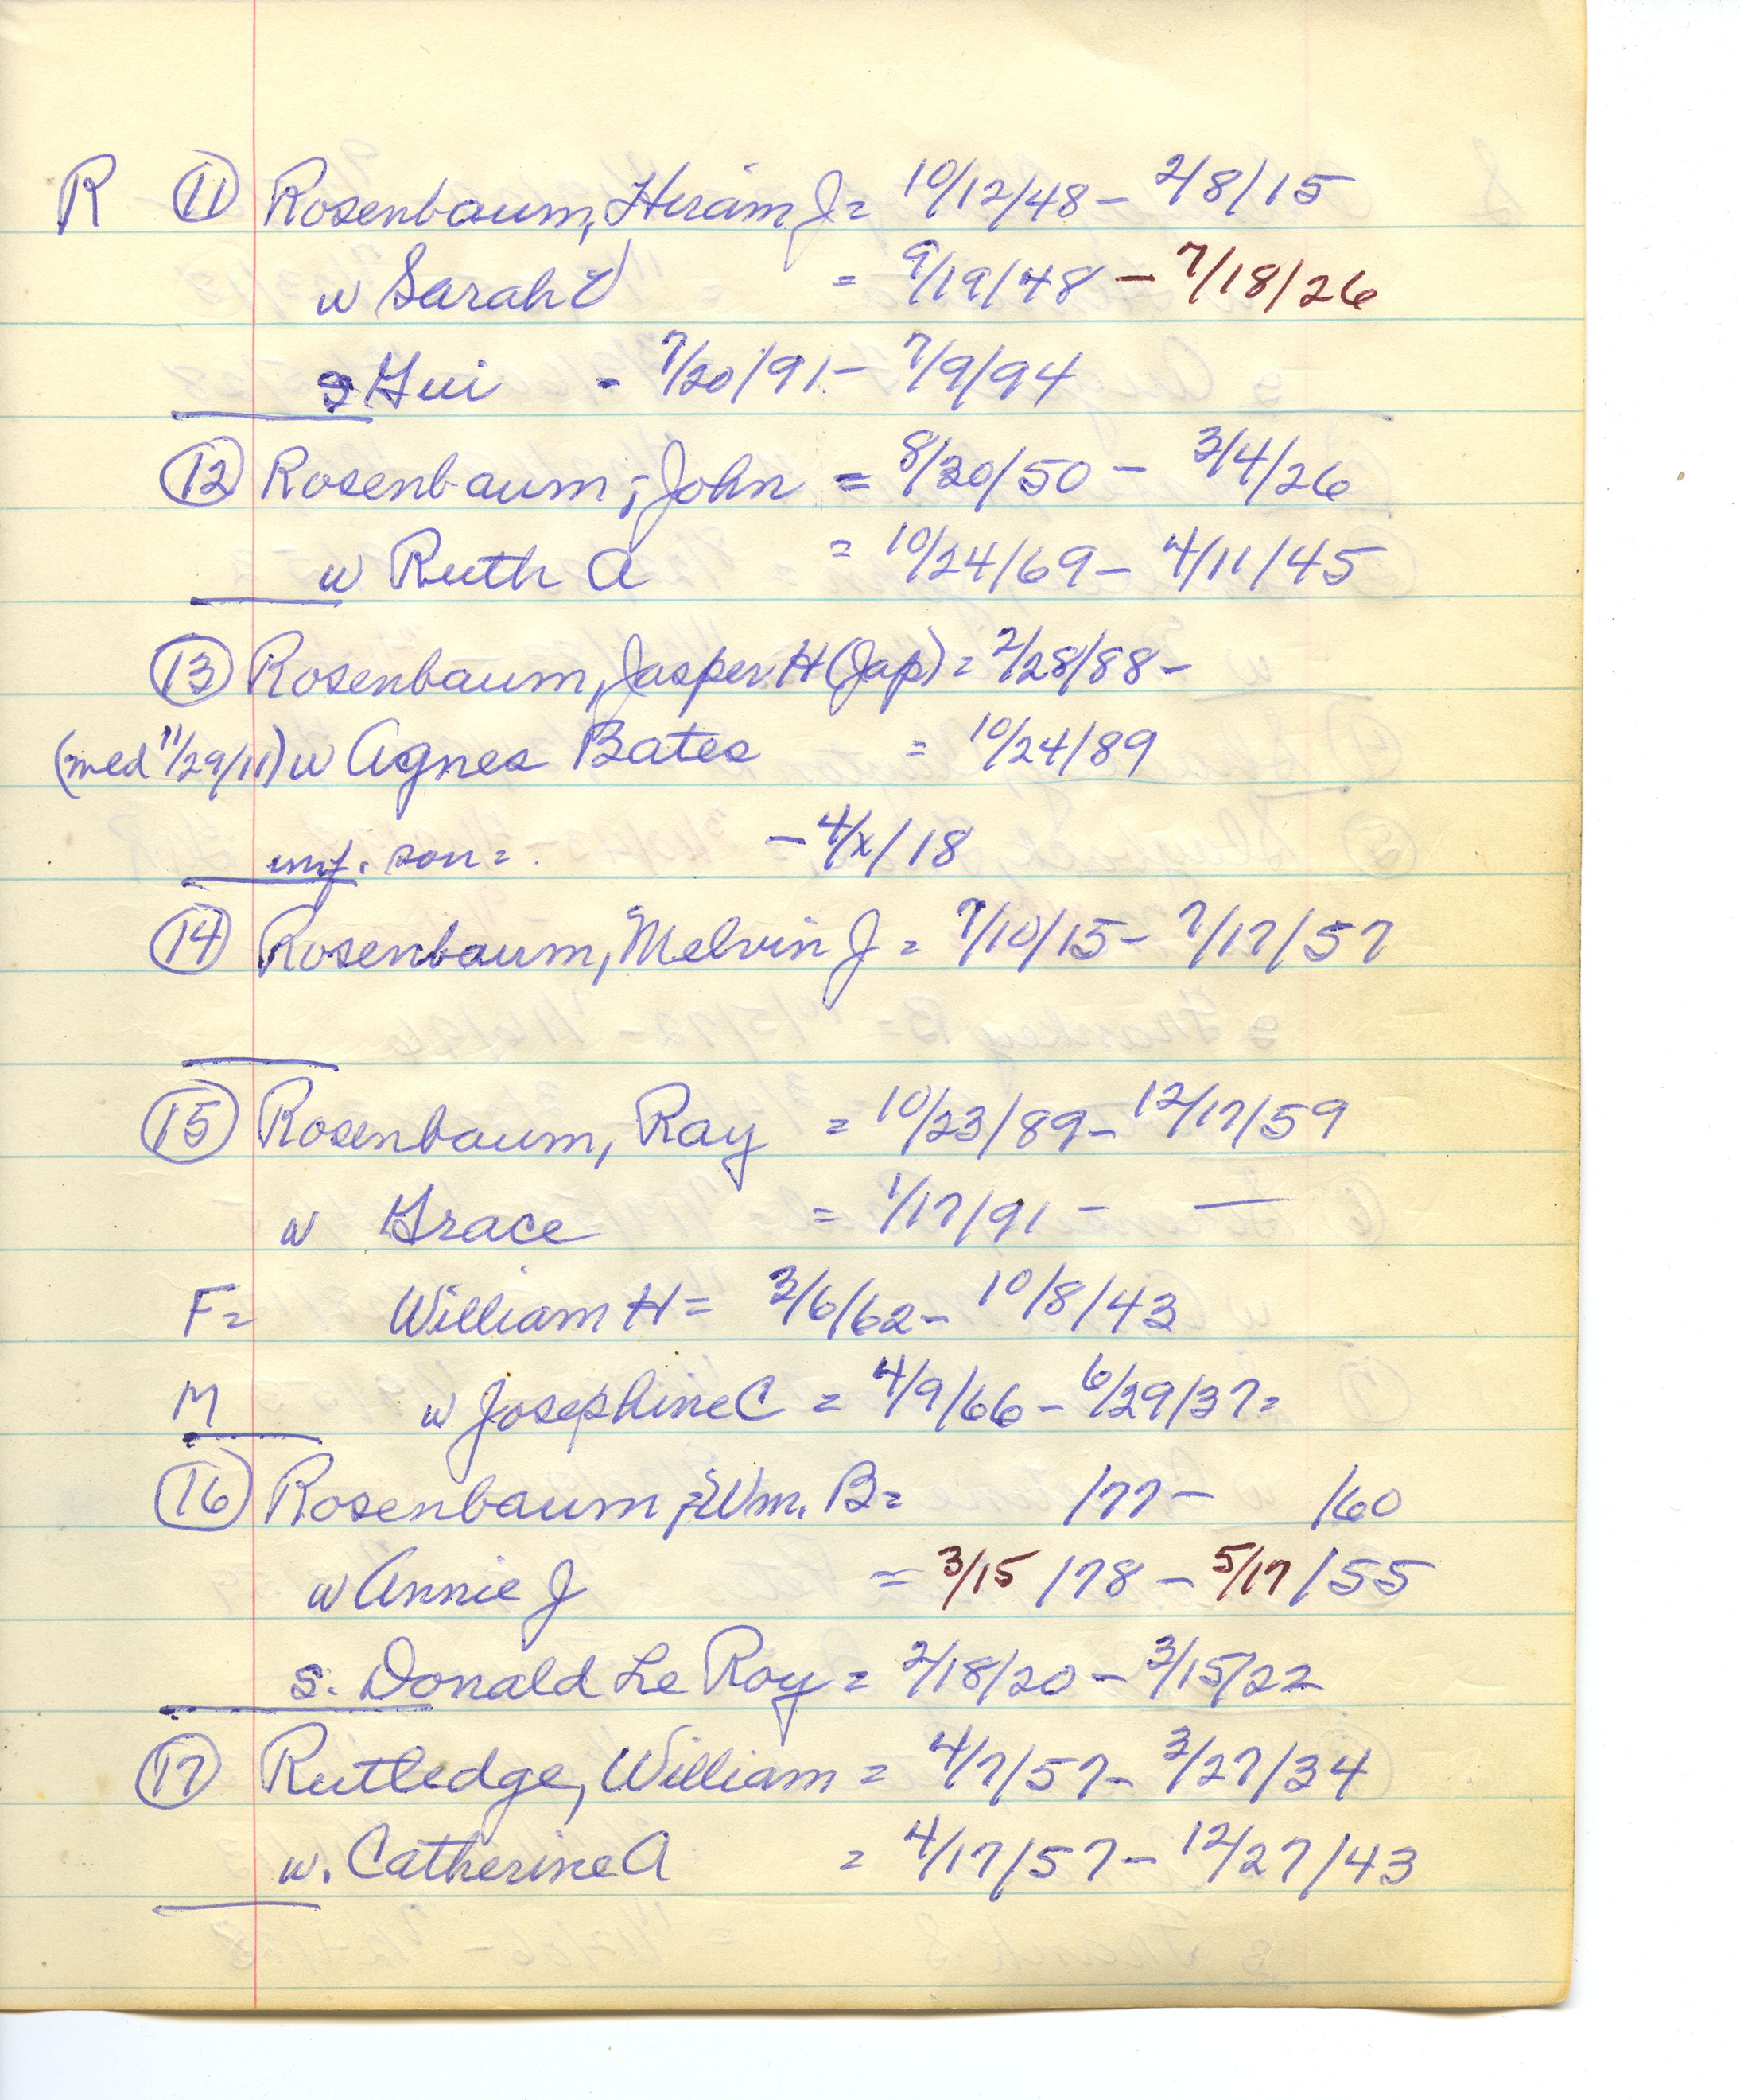 R (11) Rosenbaum, Hiram J = 10/12/48 - 2/8/15
w Sarah = 9/19/48 - 7/18/26
s Gui - 7/20/91 - 7/9/94
(12) Rosenbaum, John = 8/30/50 - 3/4/26
w Ruth A = 10/24/69 - 4/11/45
(13) Rosenbaum, Jasper H (Jap) = 2/28/88 -
(med 11/29/11) w Agnes Bates = 10/24/89
inf. son = - 4/x/18
(14) Rosenbaum, Melvin J = 7/10/15 - 7/17/57
(15) Rosenbaum, Ray = 10/23/89 - 12/17/59
w Grace = 1/17/91 - —
F = William H = 3/6/62 - 10/8/43
M w Josephine C = 4/9/66 - 6/29/37 =
(16) Rosenbaum, Wm. B = /77 - /60
w Annie J = 3/15/78 - 5/17/55
s. Donald Le Roy = 2/18/20 - 3/15/22
(17) Rutledge, William = 4/7/57 - 3/27/34
w. Catherine A = 4/17/57 - 12/27/43